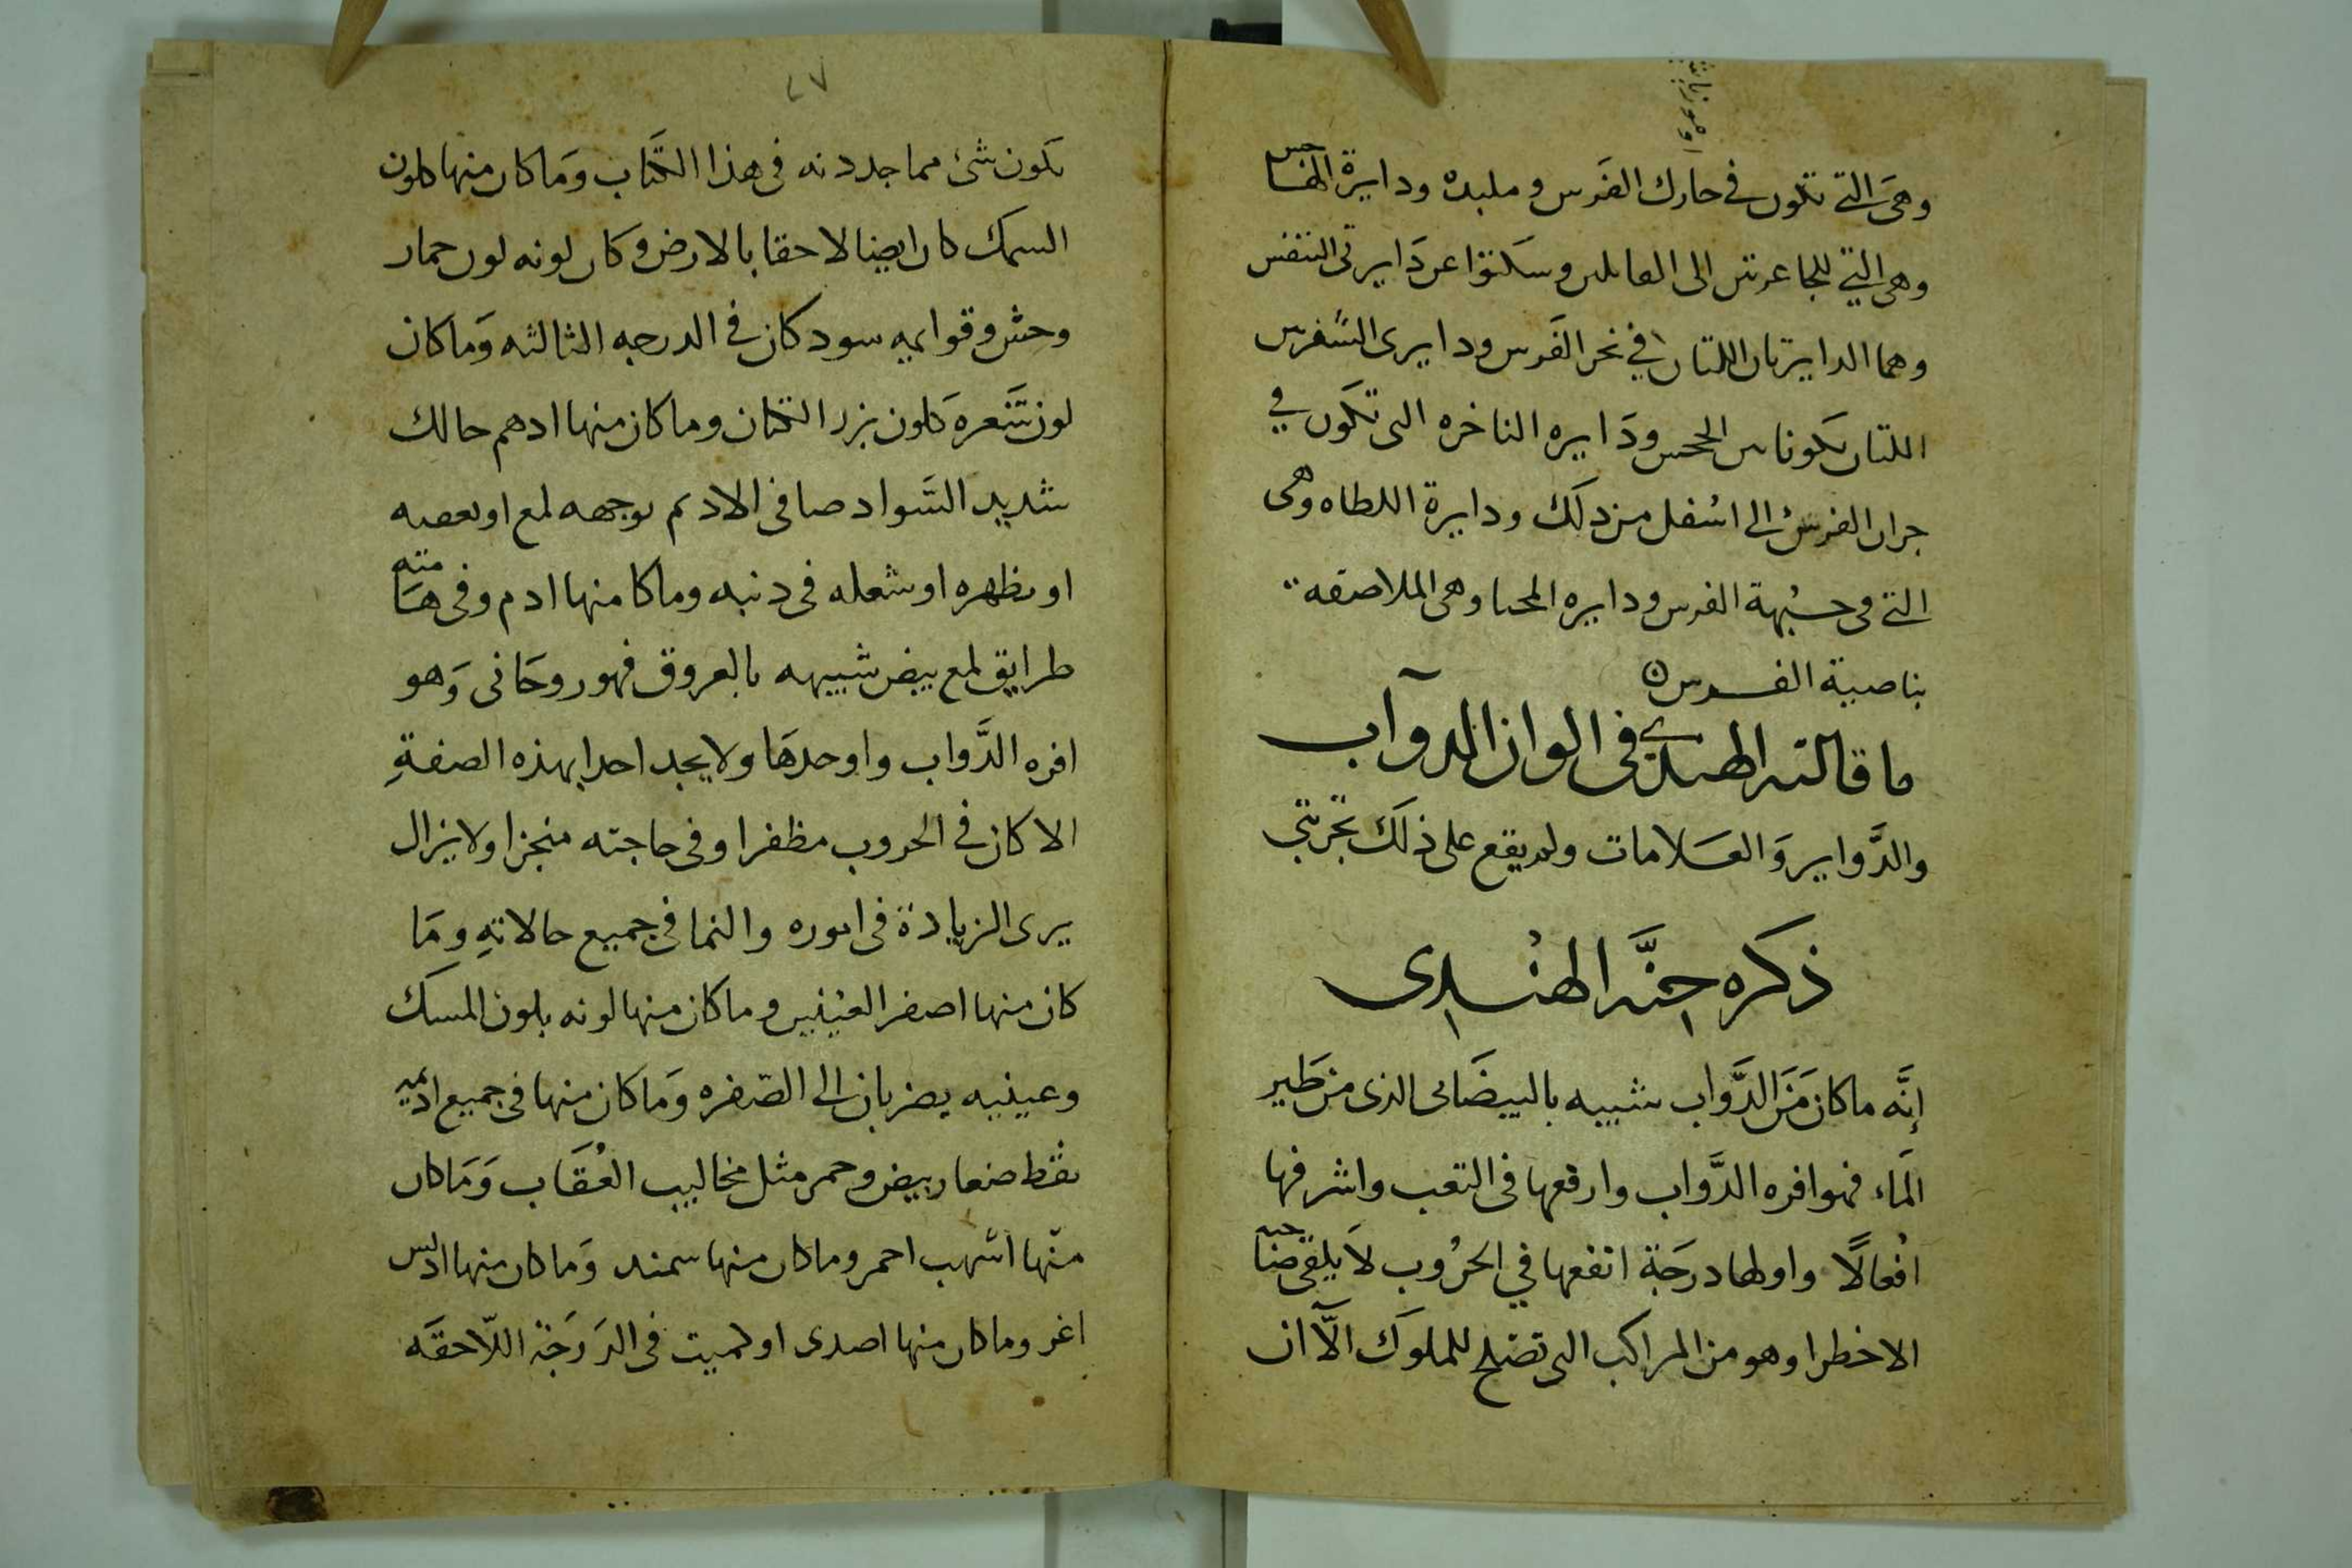 وهي التي تكون في حارك الفرس وملبده ودايرة الهناجس
وهي التي للجاعرتين الى العايلين وسكتوا عن دايرتى التنفس
وهما الدايرتان اللتان في نحر الفرس ودايرى السفرس
اللتان تكونا الححس ودايره الناخره التى تكون في
جران الفرس الى اسفل من ذلك ودايرة اللطاه وهى
التي في جبهة الفرس ودايره المحيا وهى الملاصقه
بناصية الفرس
ما قالته الهندى فى الوان الدوآب
والدَّواير وَالعَلامات ولم يقع على ذلَك تجربتي
ذكره جنَّه الهنْدى
إنَّه ما كان مَنَ الدَّواب شبيه بالبيضَانى الذى من طَير
الَماء فهو افره الدَّواب وارفعها فى التعب واشرفها
افْعالًا واولها درجَة انفعها في الحرُوب لاَ يلقى صاحبه
الا خطرا وهو من المراكب التى تصلح للملوَك الاَّ ان
٢٧
يكون شئ مما جددنه فى هذا الكتاب وَما كان منها كلون
السمك كان ايضا لاحقا بالارض وَكان لونه لون حمار
وحش وقوايمه سود كان في الدرجه الثالثه وَما كان
لون شَعره كلون بزر الكتان وما كان منها ادهم حالك
شديد السَّواد صافى الاديم بوجهه لمع او بعصبه
او بظهره او شعله فى ذنبه وما كا منها ادم وفى هامته
طرايق لمع بيض شبيهه بالعروق فهو روحَانى وَهو
افره الدَّواب واوحدهَا ولا يجد احدا بهذه الصفةِ
الا كان في الحروب مظفرا وفى حاجته منجزا ولا يزال
يرى الزيادة فى اموره والنما فى جميع حالاتهِ ومَا
كان منها اصفر العينين وما كان منها لونه بلون المسك
وعينيه يضربان الى الصّفره وَما كان منها فى جميع اديمه
نقط صغار بيض وحمر مثل مخاليب العُقَاب وَمَا كان
منها اشهب احمر وما كان منها سمند وَما كان منها ادبس
اغر وما كان منها اصدى او كميت فى الدَرَجَة اللّاحقَه